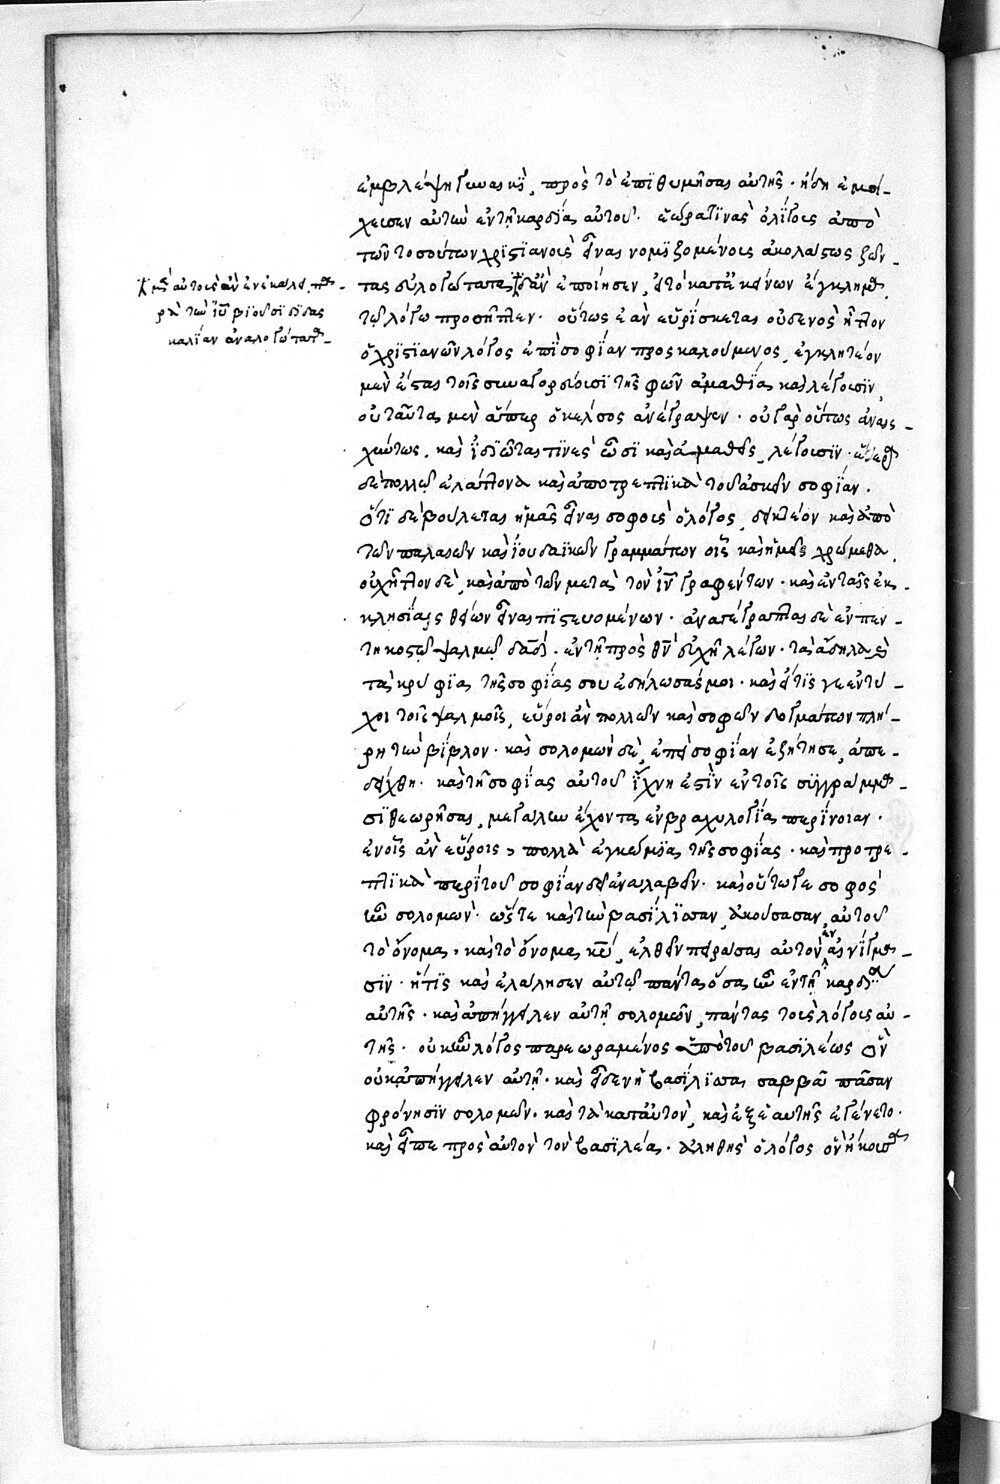 ἐμβλέψῃ γυναικὶ, πρὸς τὸ ἐπιθυμῆσαι αὐτῆς· ἤδη ἐμοί-
χευσεν αὐτὴν ἐν τῇ καρδίᾳ αὐτοῦ. ἑώρα τινὰς ὀλίγους ἀπὸ
τῶν τοσούτων χριστιανοὺς εἶναι νομιζομένους ἀκολάστως ζῶν-
τας εὐλογώτατα δ' ἂν ἐποίησεν, εἰ τὸ κατ' ἐκείνων ἔγκλημα
τῷ λόγῳ προσῆπτεν· οὕτως ἐὰν εὑρίσκηται οὐδενὸς ἧττον
ὁ χριστιανῶν λόγος ἐπὶ σοφίαν προσκαλούμενος, ἐγκλητέον
μὲν ἔσται τοῖς συναγορεύουσι τῇ σφῶν ἀμαθίᾳ καὶ λέγουσιν,
οὐ ταῦτα μὲν ἅπερ ὁ κέλσος ἀνέγραψεν· οὐ γὰρ οὕτως ἀναισ-
χύντως, καὶ ἰδιῶται τινὲς ὦσι καὶ ἀμαθεῖς, λέγουσιν· ἕτερα
δὲ πολλῷ ἐλάττονα καὶ ἀποτρεπτικὰ τοῦ ἀσκεῖν σοφίαν.
ὅτι δὲ βούλεται ἡμᾶς εἶναι σοφοὺς ὁ λόγος, δεικτέον καὶ ἀπὸ
τῶν παλαιῶν καὶ ἰουδαϊκῶν γραμμάτων οἷς καὶ ἡμεῖς χρώμεθα,
οὐχ ἧττον δὲ, καὶ ἀπὸ τῶν μετὰ τὸν ἰν γραφέντων· καὶ ἐν ταῖς ἐκ-
κλησίαις θείων εἶναι πιστευομένων· ἀναγέγραπται δὲ ἐν πεν-
τηκοστῷ ψαλμῷ δαδ. ἐν τῇ πρὸς θν εὐχῇ λέγων· τὰ ἄδηλα καὶ
τὰ κρύφια τῆς σοφίας σου ἐδήλωσάς μοι· καὶ εἴ τις γε ἐντύ-
χοι τοῖς ψαλμοῖς, εὕροι ἂν πολλῶν καὶ σοφῶν δογμάτων πλή-
ρη τὴν βίβλον· καὶ σολομὼν δὲ, ἐπεὶ σοφίαν ἐζήτησε, ἀπε-
δέχθη· καὶ τῆς σοφίας αὐτοῦ ἴχνη ἐστὶν ἐν τοῖς συγγράμμα-
σι θεωρῆσαι, μεγάλην ἔχοντα ἐν βραχυλογίᾳ περίνοιαν·
ἐν οἷς ἂν εὕροις, πολλὰ ἐγκώμια τῆς σοφίας· καὶ προτρε-
πτικὰ περὶ τοῦ σοφίαν δεῖν ἀναλαβεῖν. καὶ οὕτω γε σοφὸς
ἦν σολομών· ὥστε καὶ τὴν βασιλίσσαν, ἀκούσασαν αὐτοῦ
τὸ ὄνομα, καὶ τὸ ὄνομα κυ, ἐλθεῖν πειρᾶσαι αὐτὸν ἐν αἰνίγμα-
σιν· ἥτις καὶ ἐλάλησεν αὐτῷ πάντα ὅσα ἦν ἐν τῇ καρδίᾳ
αὐτῆς· καὶ ἀπήγγειλεν αὐτῇ σολομῶν, πάντας τοὺς λόγους αὐ-
τῆς· οὐκ ἦν λόγος παρεωραμένος ὑπὸ τοῦ βασιλέως ὃν
οὐκ ἀπήγγειλεν αὐτῇ· καὶ εἶδεν ἡ βασίλισσα σαββᾶ πᾶσαν
φρόνησιν σολομῶν, καὶ τὰ κατ' αὐτὸν, καὶ ἐξ ἑαυτῆς ἐγένετο·
καὶ εἶπε πρὸς αὐτὸν τὸν βασιλέα· ἀληθὴς ὁ λόγος ὃν ἤκουσα
μὲν αὐτοῖς ἂν ἐνεκάλει, πα-
ρὰ τὴν ἰυ βιοῦσι διδασ
καλίαν ἀναλογώτατα